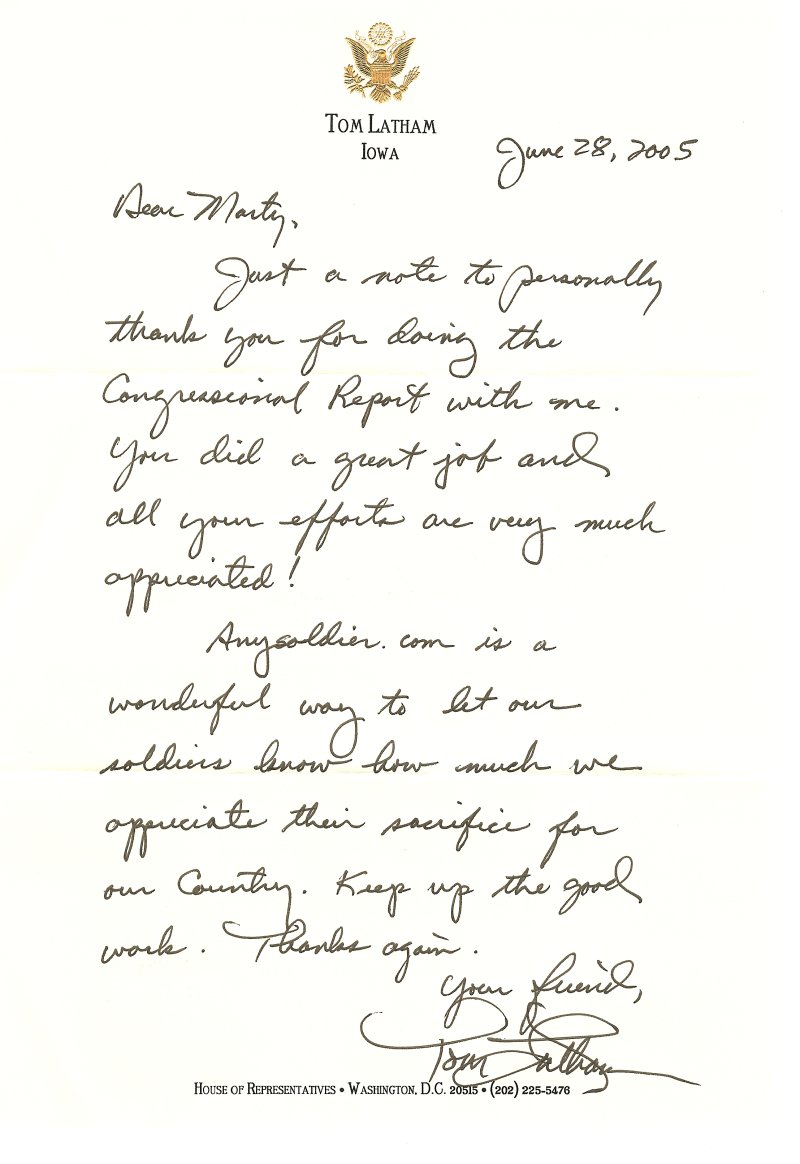 TOM LATHAM
IOWA
June 28, 2005
Dear Marty,
Just a note to personally
thank you for doing the
Congressional Report with me.
You did a great job and
all your efforts are very much
appreciated!
Anysoldier.com is a
wonderful way to let our
soldiers know how much we
appreciate their sacrifice for
our Country. Keep up the good
work. Thanks again.
Your friend,
Tom Latham
HOUSE OF REPRESENTATIVES • WASHINGTON, D.C. 20515 • (202) 225-5476